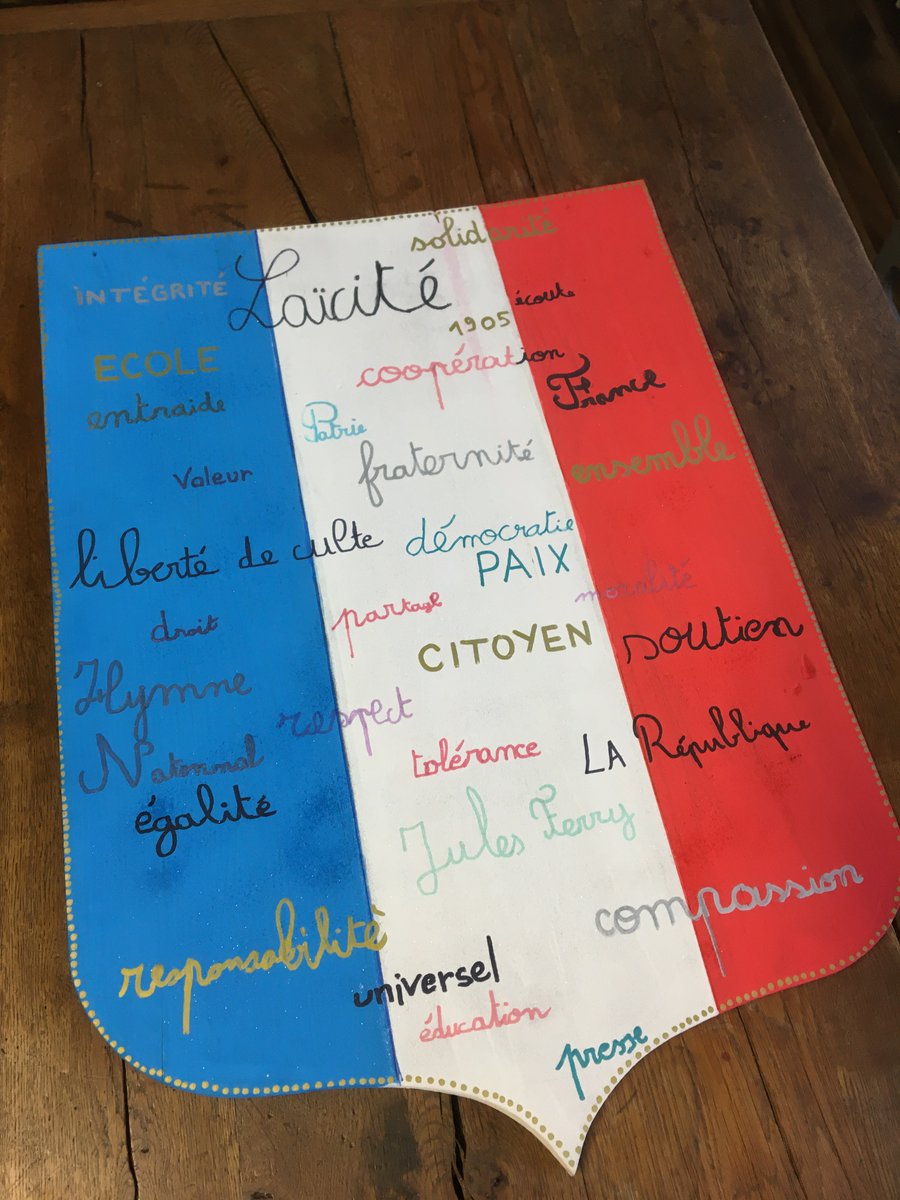 solidarité
INTÉGRITÉ
Laïcité
écoute
1905
ECOLE
coopération
France
entraide
Patrie
fraternité
ensemble
Valeur
liberté de culte
démocratie
PAIX
moralité
partage
droit
CITOYEN
soutien
Hymne
National
respect
tolérance
LA République
égalité
Jules Ferry
compassion
responsabilité
universel
éducation
presse